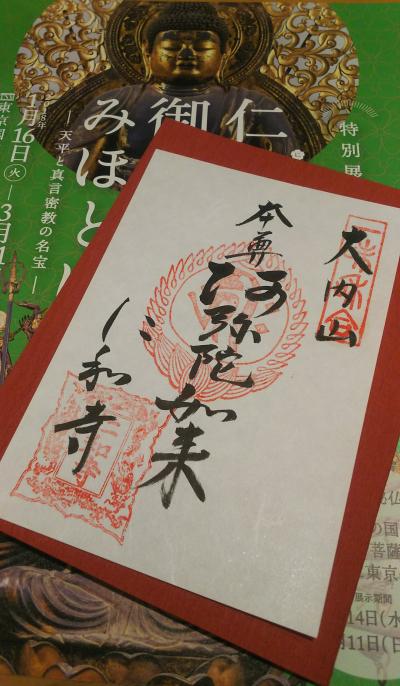 特別展
仁
御
みほと
― 天平と真言密教の名宝 ―
1月16日㊋―3月1
東京国
大内山
本尊
阿弥陀如来
仁和寺
仁和寺
の国
菩薩
東京
展示期間
14日(水
11日(日